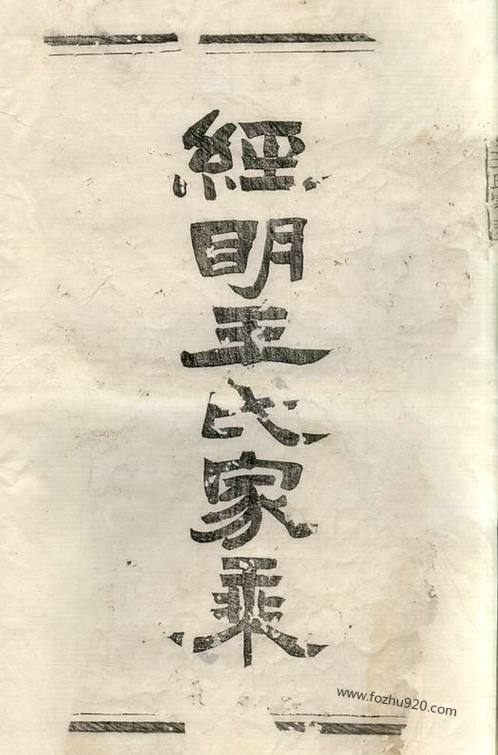 經明王氏家乘
www.fozhu920.com